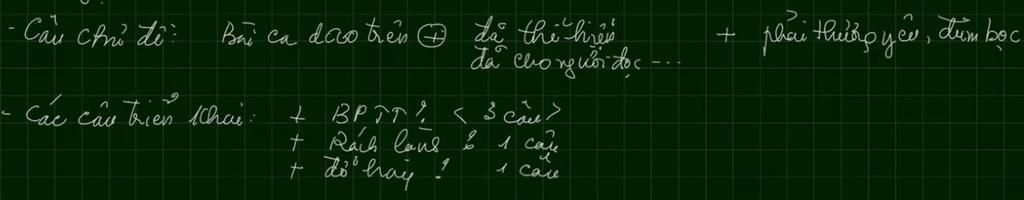 - Câu chủ đề: Bài ca dao trên ⊕ đã thể hiện + phải thương yêu, đùm bọc
đã cho người đọc ...
- Các câu triển khai: + BPTT? < 3 câu >
+ Rách lành : 1 câu
+ đỡ hay ? 1 câu